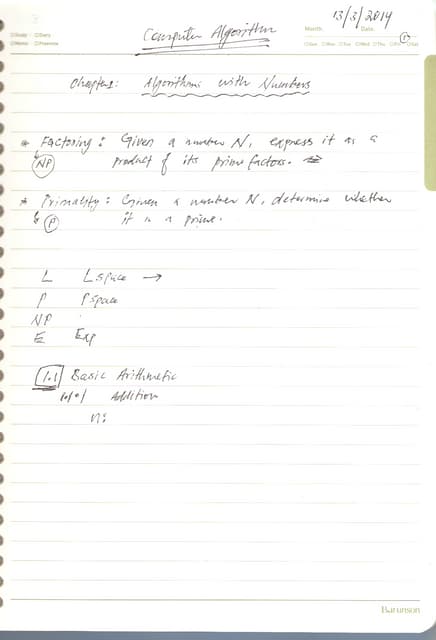 13/3/2019
Month. Date.
Computer Algorithm
Chapter1: Algorithms with Numbers
* Factoring: Given a number N, express it as a
NP product of its prime factors.
* Primality: Given a number N, determine whether
P it is a prime.
L Lspace →
P Pspace
NP
E Exp
1.1 Basic Arithmetic
1.1.1 Addition
n:
Barunson